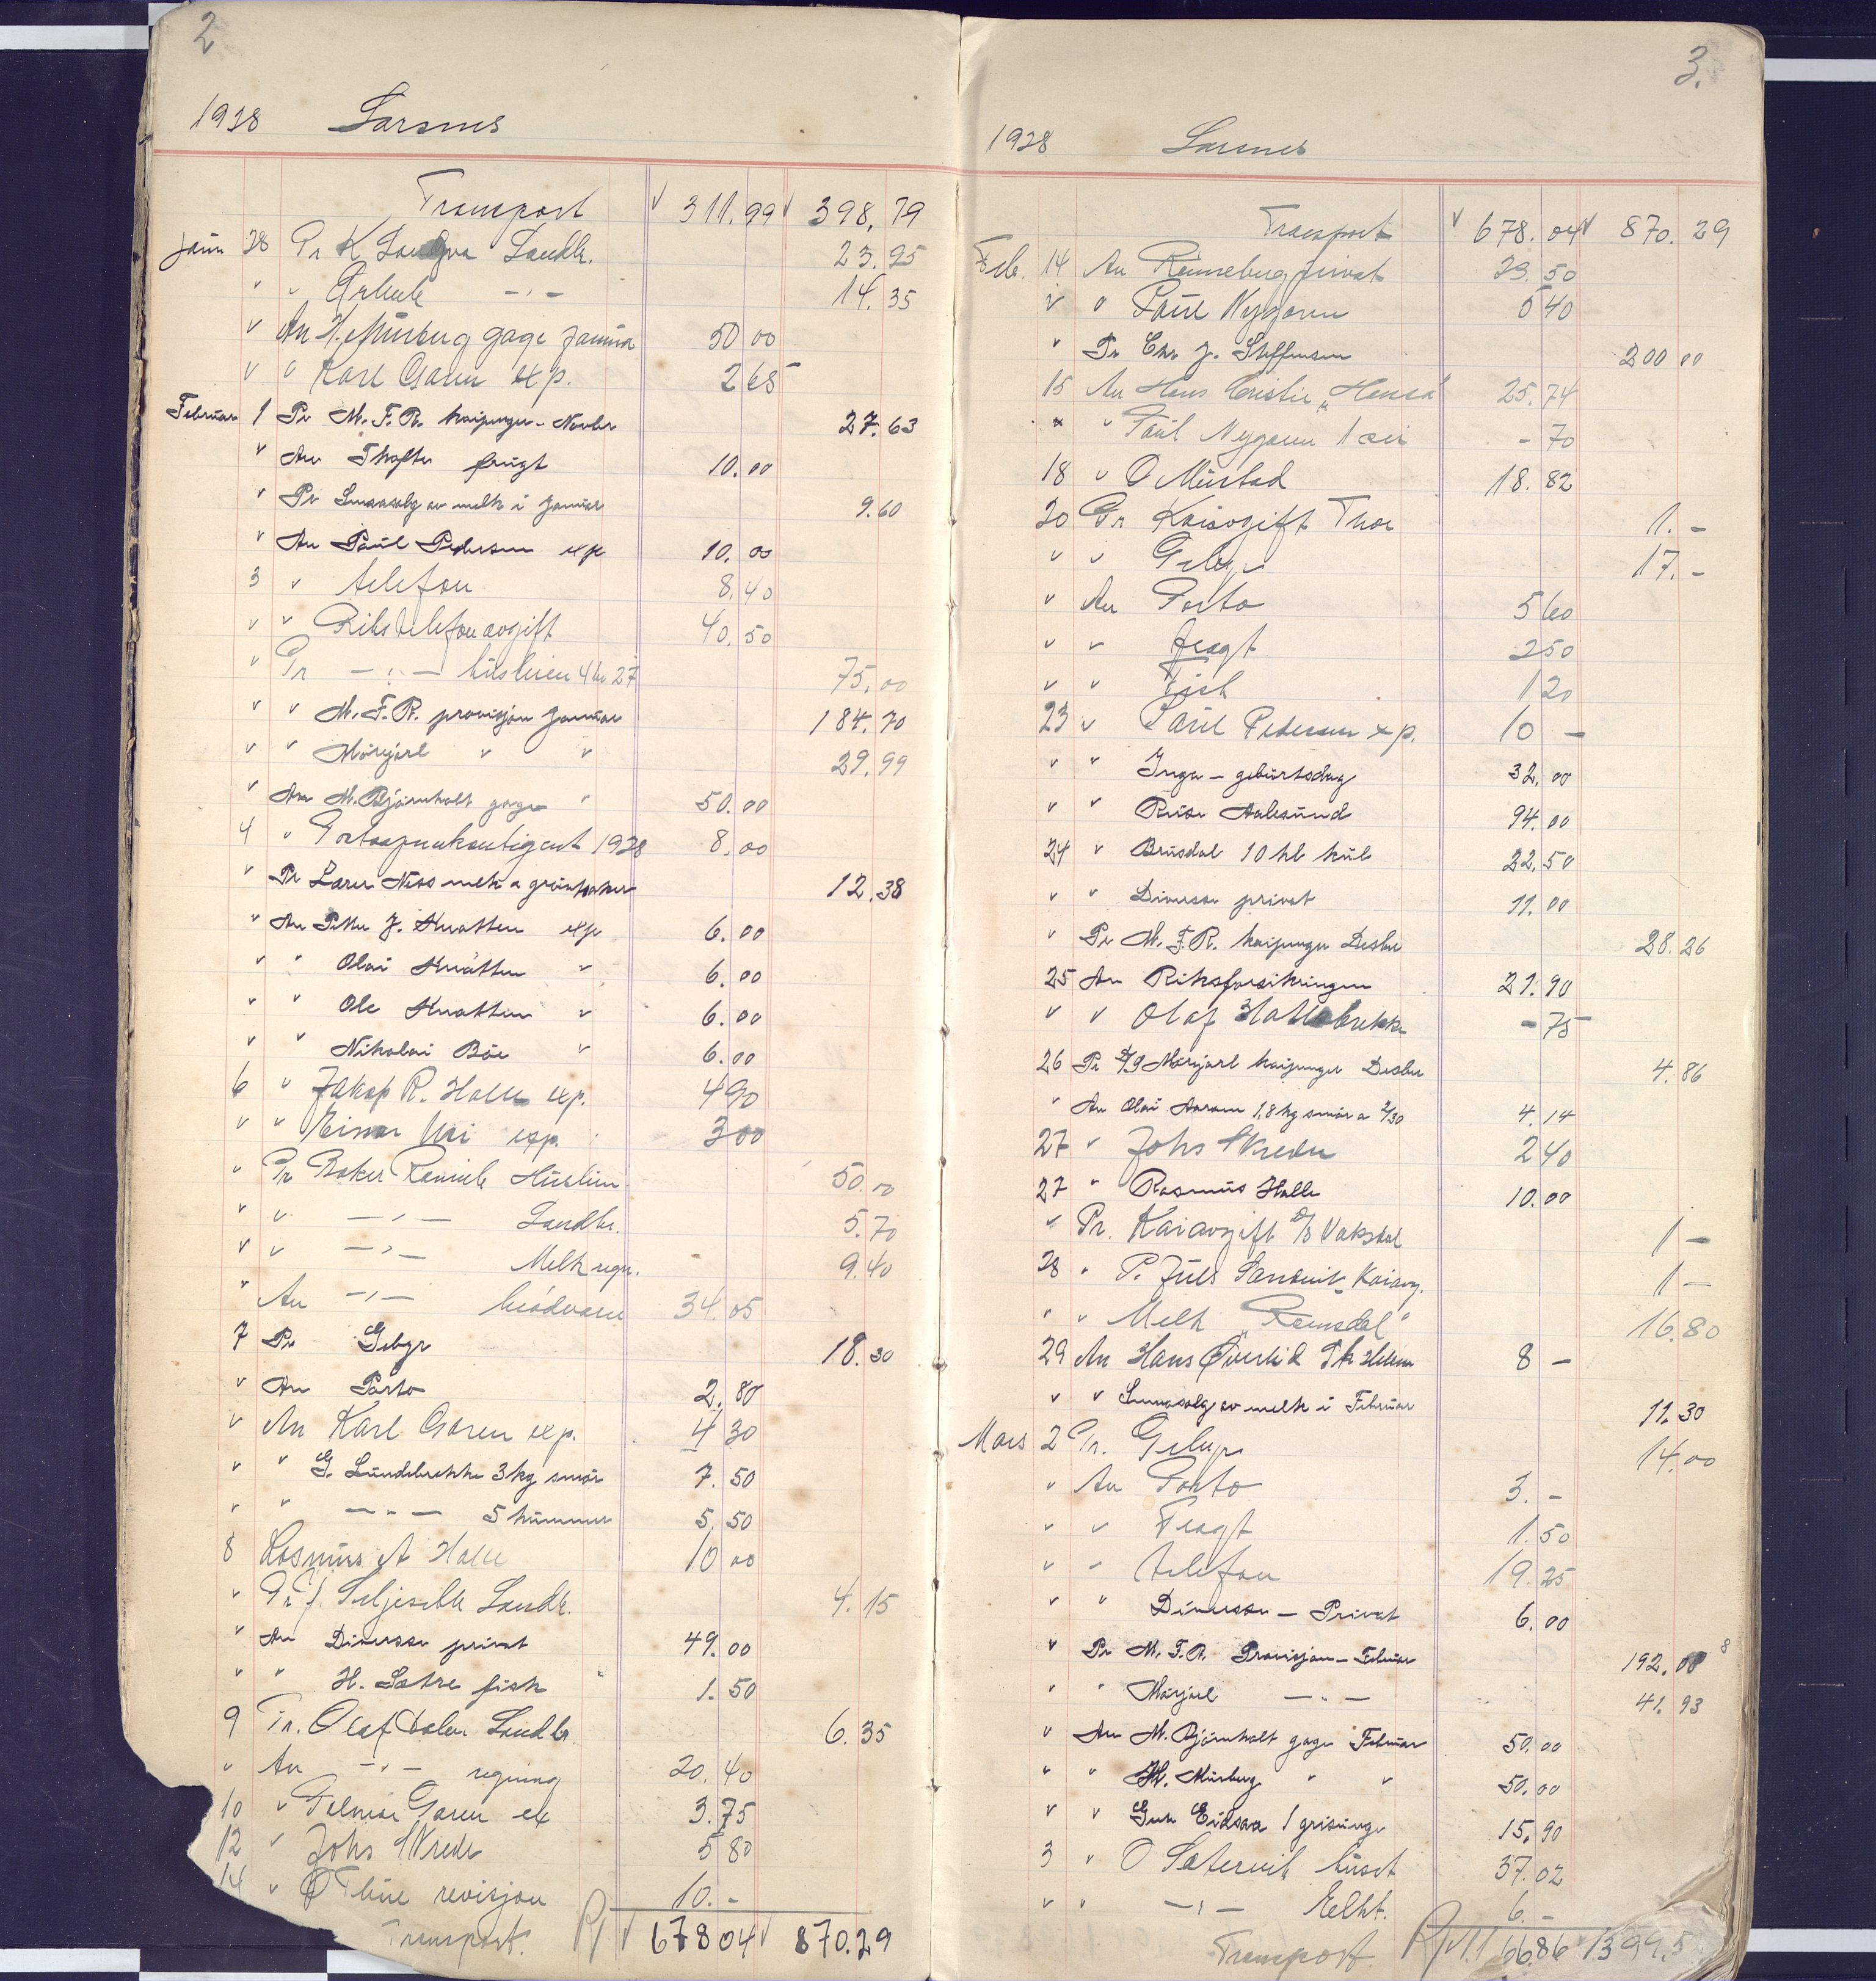 2
1928 Larsnes
Transport 311.99 398.79
Janu 28 Pr K Landbr. 23.95
" " 14.35
" An gage Januar 50 00
" " Karl Garen exp. 2 65
Februar 1 Pr M.F.R. kaipenger - Novbr 27.63
" An frugt 10.00
" Pr Smaasalg av melk i Januar 9.60
" An Paul Pedersen exp 10.00
3 " telefon 8.40
" " Rikstelefonavgift 40.50
" Pr - " - husleien 4 kv 27 75.00
" " M.F.R. provisjon Januar 184.70
" " Mörejarl " " 29.99
" An M. Bjørnholt gage " 50.00
4 " 1928 8.00
" Pr Lærer Ness melk a 12.38
" An Petter J. Knotten exp 6.00
" " Olai Knotten " 6.00
" " Ole Knotten " 6.00
" " Nikolai Böe " 6.00
6 " Jakop R. Halle exp. 4 90
" " Einar exp. 3 00
" Pr Baker Husleie 50.00
" " - " - Landbr. 5.70
" " - " - Melkregn. 9.40
" An - " - brödvarer 34.05
7 Pr Gebyr 18.30
" An Porto 2.80
" An Karl Garen exp. 4 30
" " G. Lundebrekke 3 kg smör 7.50
" " - " - 5 hummer 5.50
8 Rasmus A Halle 10 00
" Pr J. Seljeseth Landbr. 4.15
" An Diverse privat 49.00
" " H. Sætre fisk 1.50
9 Pr. Olaf Dalen Landbr 6.35
" An - " - regning 20.40
10 " Garen ex 3.75
12 " Johs Vrede 5 80
14 " O revisjon 10.-
Transport. 678 04 870.29
3.
1928 Larsnes
Transport 678.04 870.29
Feb. 14 An privat 23.50
" " Paul Nygaren 5 40
" Pr Chr J. Steffensen 200 00
15 An Hans Cristie "Hansa" 25.74
" " Paul Nygaren 1 - 70
18 " O Mustad 18.82
20 Pr Kaiavgift Thor 1.-
" " Gebyr 17.-
" An Porto 5 60
" " fragt 2 50
" " Fisk 1 20
23 " Paul Pedersen exp. 10 -
" " Inga - geburtsdag 32.00
" " Reise Aalesund 94.00
24 " Brusdal 10 hl kul 22.50
" " Diverse privat 11.00
" Pr M.F.R. kaipenger Desbr 28.26
25 An Riksforsikringen 21.90
" " Olaf Hallebrekke - 75
26 Pr D/S Mörejarl kaipenger Desbr 4.86
" An Olai Aaram 1,8 kg smör a 2/30 4.14
27 " Johs Vrede 2 40
27 " Rasmus Halle 10.00
" Pr. Kaiavgift D/S Vaksdal 1 -
28 " P. Juls Sandvik Kaiavg. 1 -
" " Melk "Romsdal" 16.80
29 An Hans Överlid 8 -
" " Smaasalg av melk i Februar 11.30
Mars 2 Pr. Gebyr 14.00
" An Porto 3.-
" " Fragt 1.50
" " telefon 19.25
" " Diverse - Privat 6.00
" Pr M.F.R. Provisjon - Februar 192.00 8
" " Mörejarl - " - 41.93
" An M. Bjørnholt gage Februar 50.00
" " H. Mürberg " " 50.00
" " Gun Eidsaa 1 grisunge 15.90
3 " O Sætervik huset 37.02
" " - " - Eelkt. 6.-
Transport 1166.86 1399.5